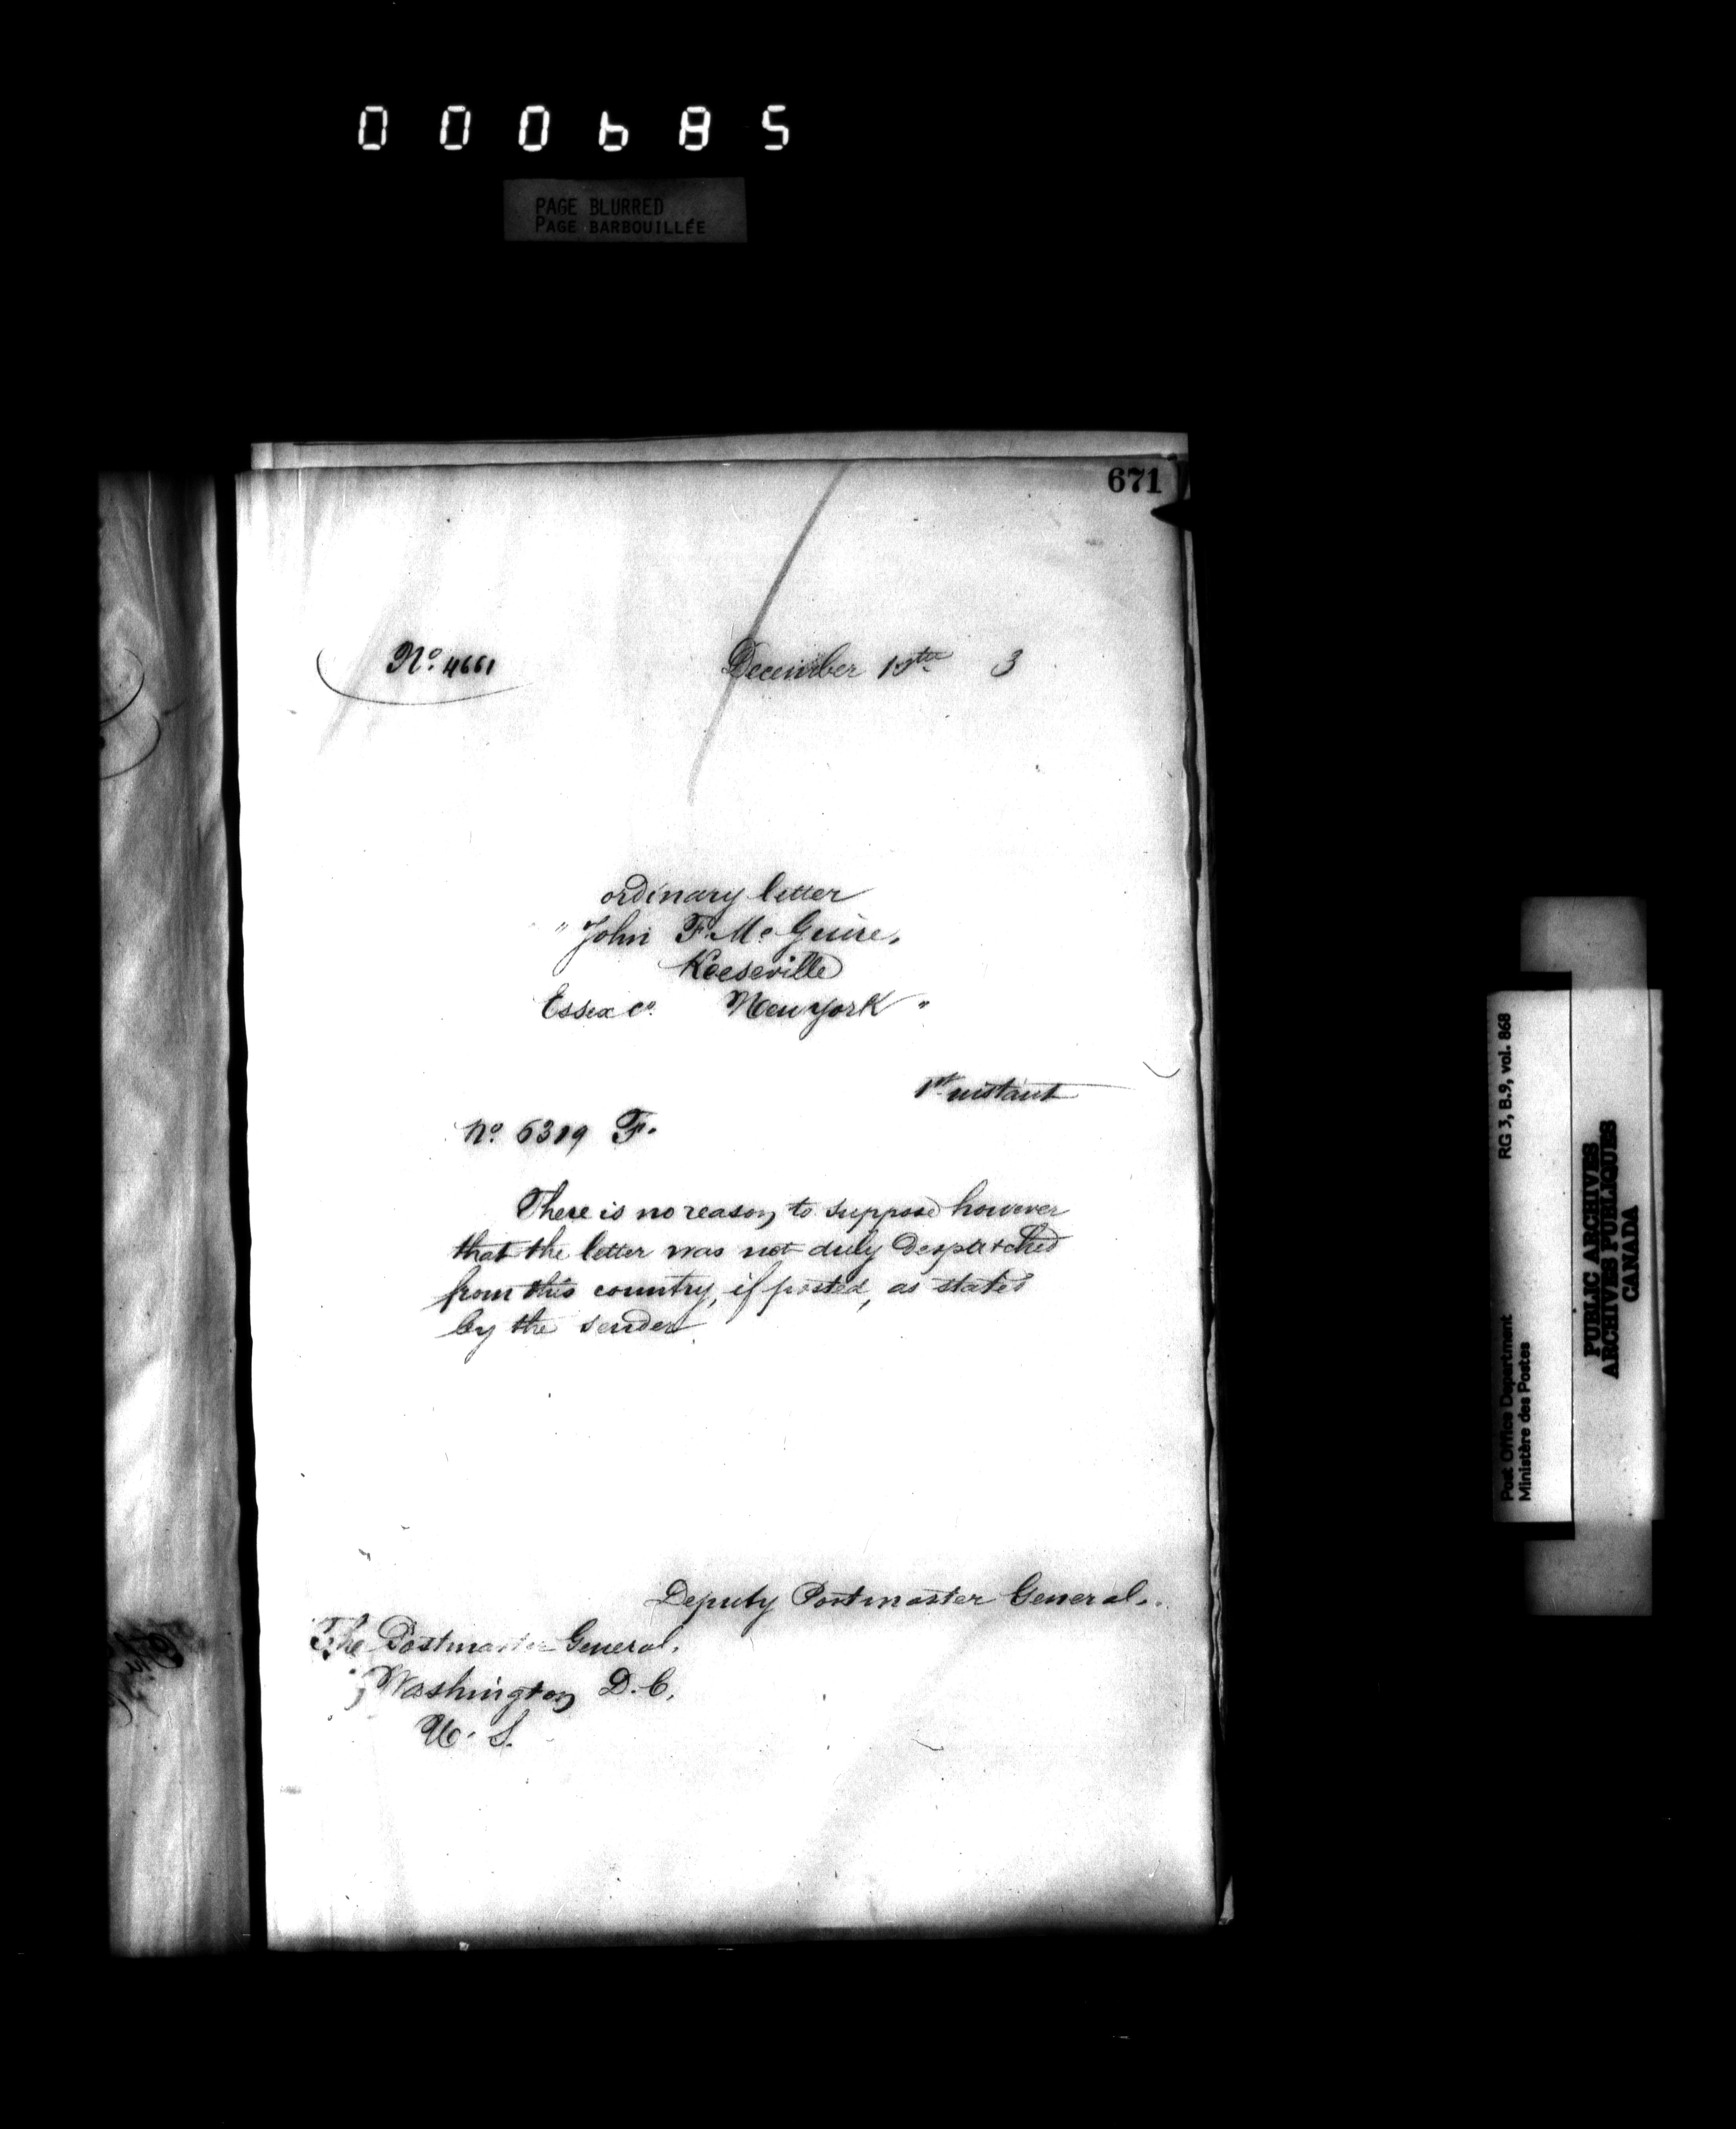 000685
PAGE BLURRED
PAGE BARBOUILLÉE
671
No. 4661
December 3
ordinary letter
"John F. Mc Guire,
Keeseville
Essex Co. New York"
1st instant
No. 6319 F.
There is no reason to suppose however
that the letter was not duly despatched
from this country, if posted, as stated
by the sender
Deputy Postmaster General.
The Postmaster General,
Washington D.C.
U. S.
RG 3, B.9, vol. 868
Post Office Department
Ministère des Postes
PUBLIC ARCHIVES
ARCHIVES PUBLIQUES
CANADA